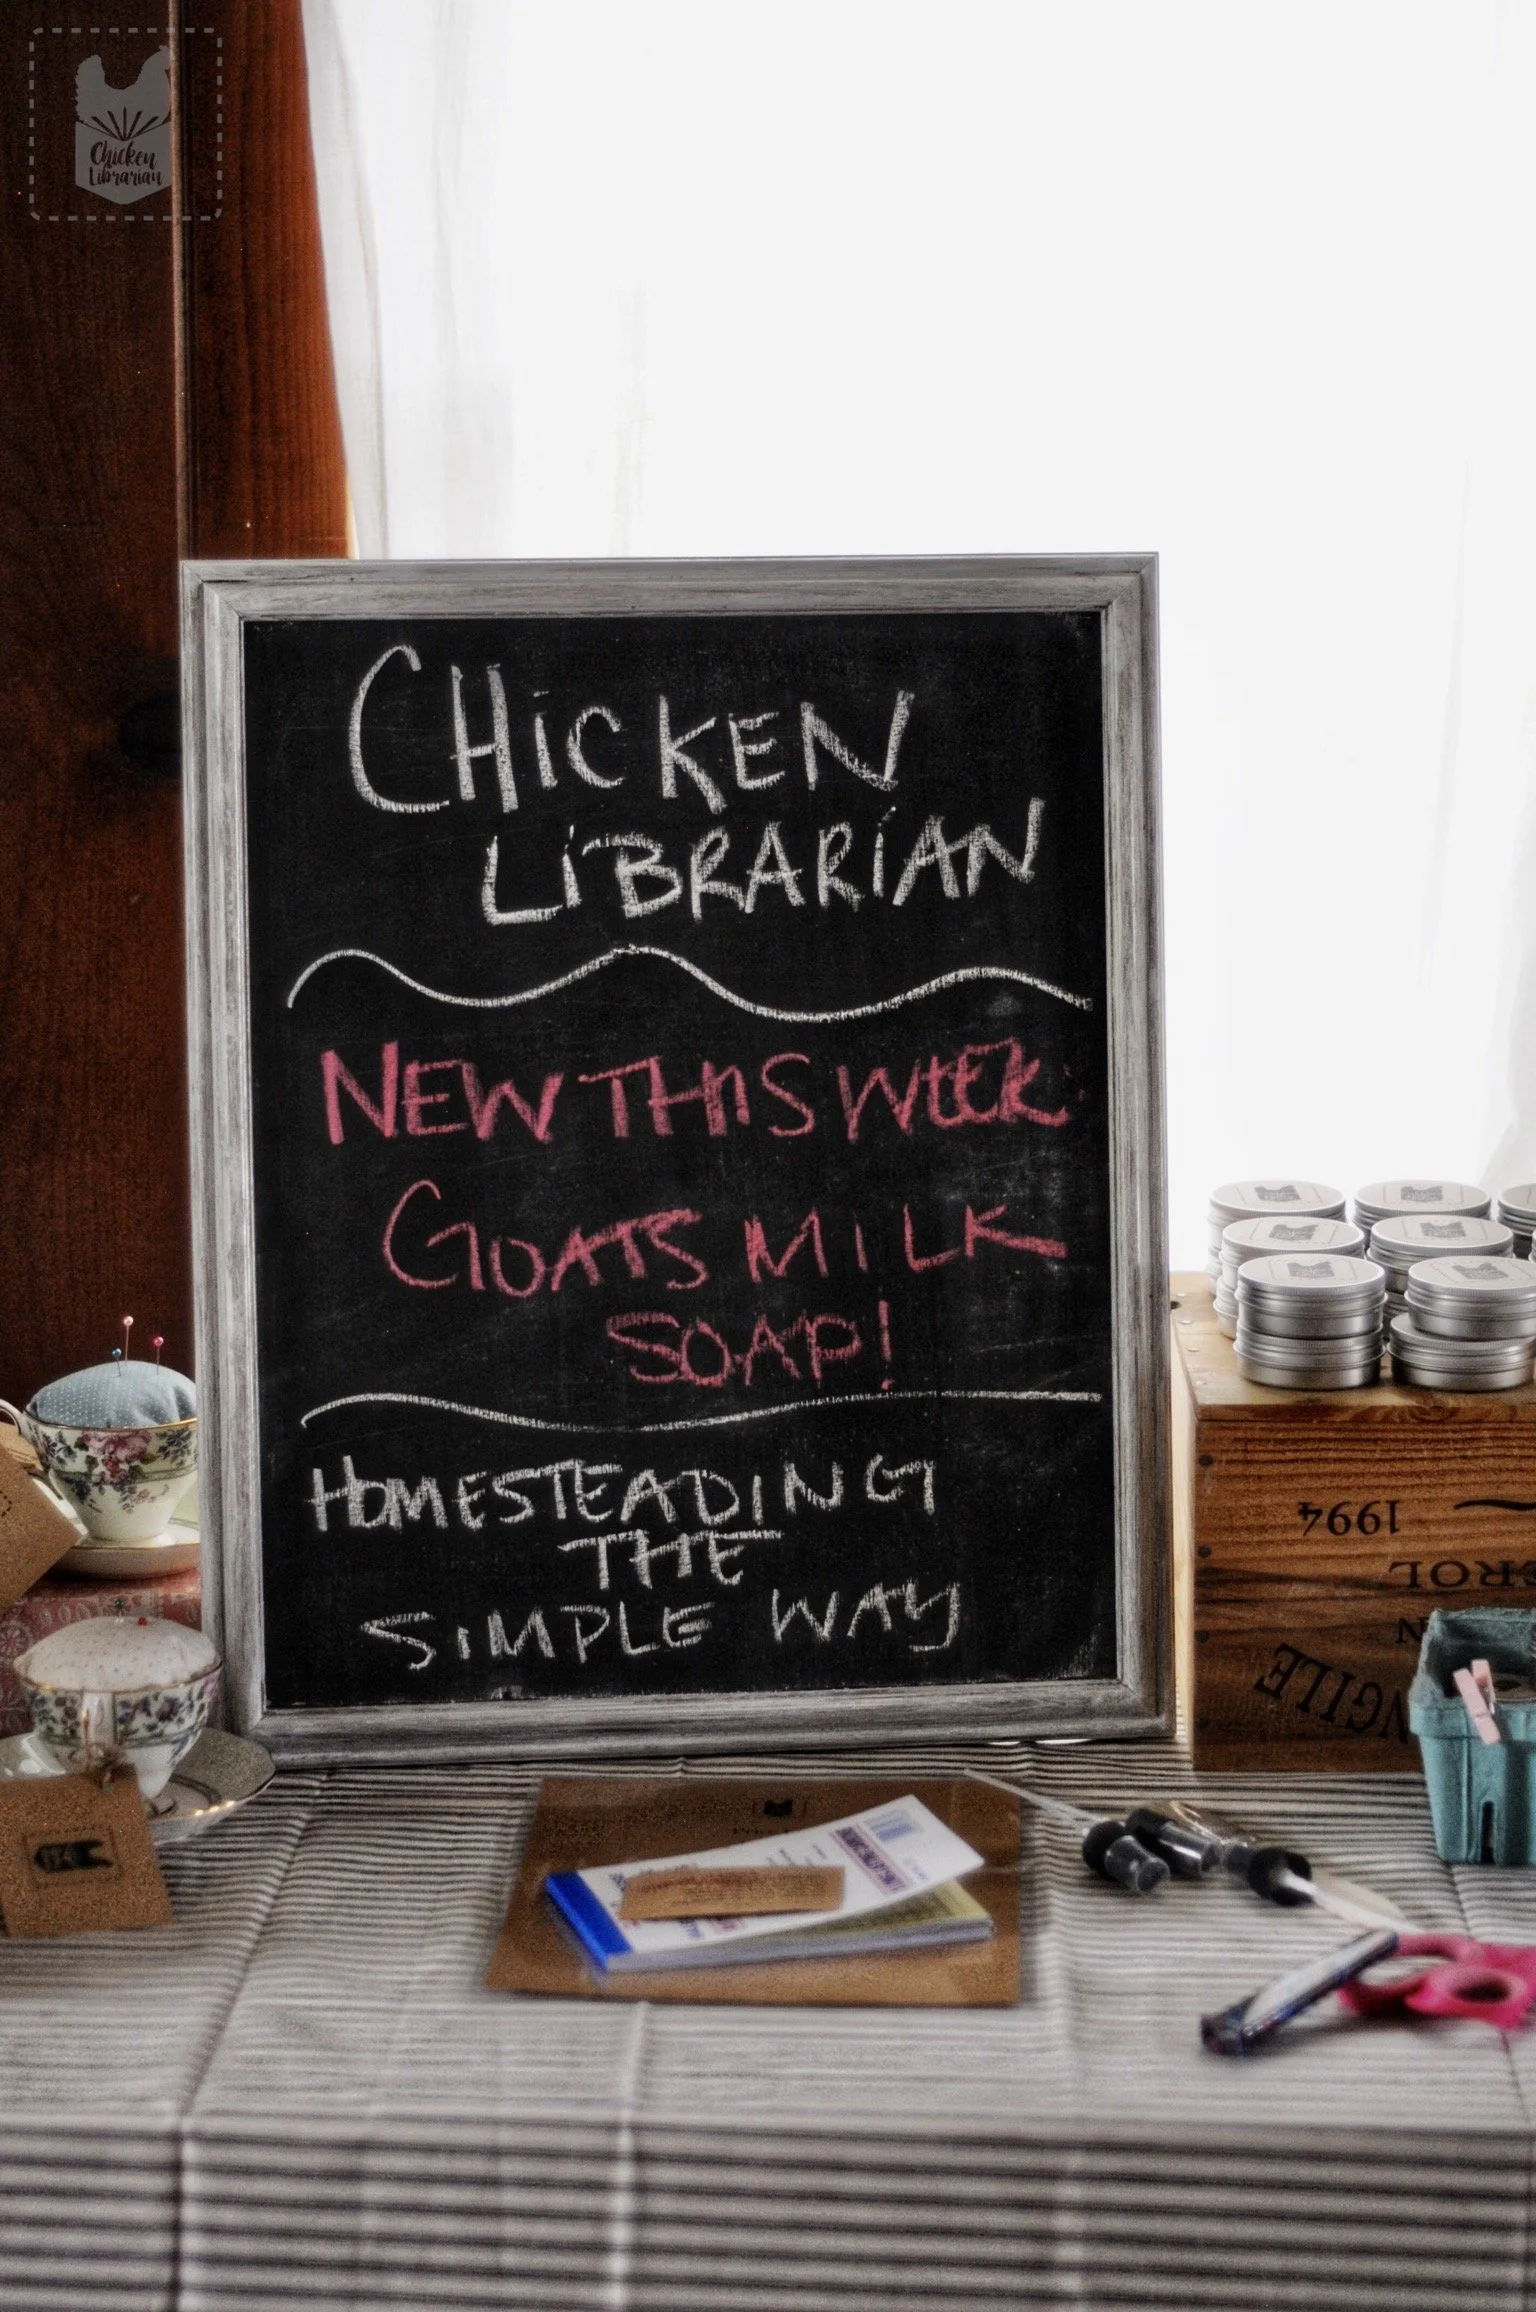 Chicken
Librarian
CHiCKEN
LiBRARiAN
NEW THIS WEEK:
GOATS MILK
SOAP!
HOMESTEADING
THE
SIMPLE WAY
1994